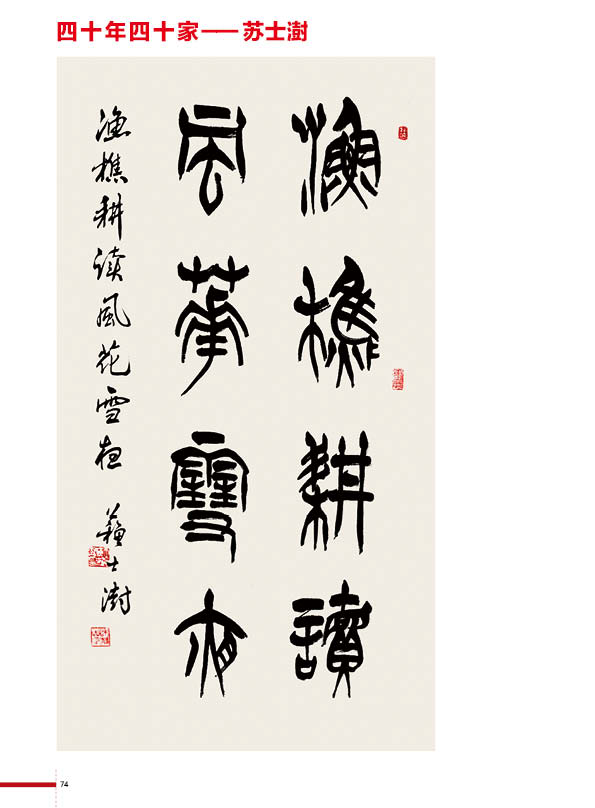 四十年四十家——苏士澍
漁樵耕讀
風華雪夜
渔樵耕读風花雪夜 蘇士澍
74